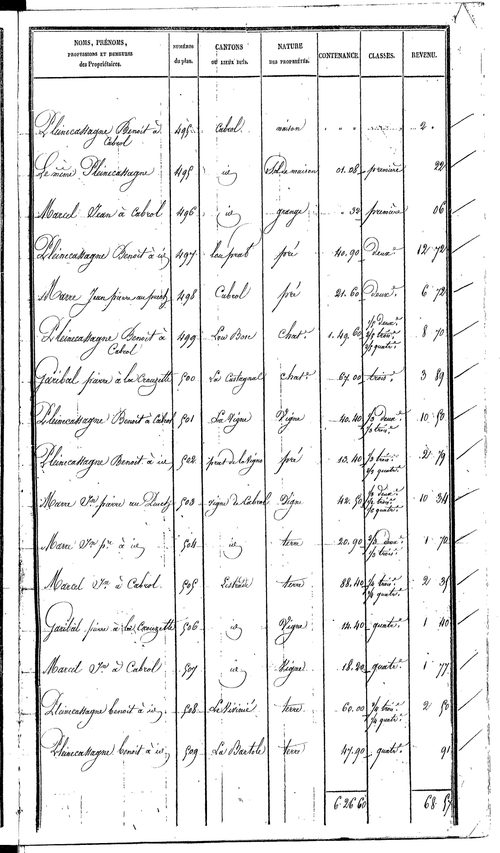 NOMS, PRÉNOMS, PROFESSIONS ET DEMEURES des Propriétaires. NUMÉROS du plan. CANTONS OU LIEUX DITS. NATURE DES PROPRIÉTÉS. CONTENANCE. CLASSES. REVENU.
Pleinecassagne Benoit à Cabrol 495 Cabrol maison 2
Le même Pleinecassagne 495 id Sol de maison 01.08 première 22
Marcel Jean à Cabrol 496 id grange 32 première 06
Pleinecassagne Benoit à id 497 Lou prat pré 40.90 deux.e 12 72
Marre Jean pierre au 498 Cabrol pré 21.60 deux.e 6 72
Pleinecassagne Benoit à Cabrol 499 Lou Bosc chat.e 1.49.60 deux.e trois.e quatr.e 8 70
Garibal pierre à la Crouzette 500 La Castagnal chat.e 67.00 trois.e 3 89
Pleinecassagne Benoit à Cabrol 501 La Vigne Vigne 40.40 deux.e trois.e 10 50
Pleinecassagne Benoit à id 502 prat de la Vigne pré 13.40 trois.e quatr.e 2 79
Marre Jn pierre au 503 Vigne de Cabrol Vigne 42.50 deux.e trois.e quatr.e 10 34
Marre Jn pre à id 504 id terre 20.90 deux.e trois.e 1 70
Marcel Jn à Cabrol 505 terre 88.40 trois.e quatr.e 2 35
Garibal pierre à la Crouzette 506 id Vigne 14.40 quatr.e 1 40
Marcel Jn à Cabrol 507 id Vigne 18.20 quatr.e 1 77
Pleinecassagne benoit à id 508 terre 60.00 trois.e quatr.e 2 50
Pleinecassagne benoit à id 509 La Bartole terre 47.90 quatr.e 91
6.26.60 68 57